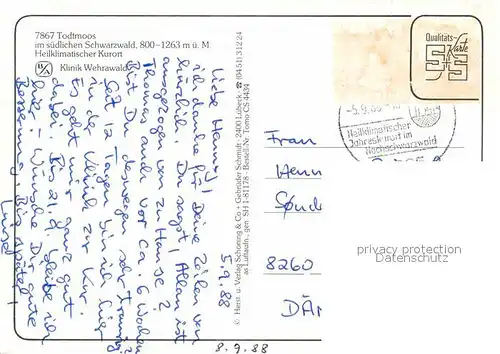 7867 Todtmoos
im südlichen Schwarzwald, 800–1263 m ü. M.
Heilklimatischer Kurort
Klinik Wehrawald
Qualitäts-
Karte
5.9.88
Heilklimatischer
Jahreskurort im
Hochschwarzwald
© Horst u. Verlag Schöning & Co · Gebrüder Schmidt · 2400 Lübeck ☎ (04 51) 3 12 24
as Luftaufn., gen. SH 1-81178 · Bestell-Nr. Todmo CS 4434
5.9.88
Liebe Hanny!
ich danke für Deine Zeilen von
kürzlich. Du sagst, Allan ist
ausgezogen von zu Hause?
Thomas auch vor ca. 6 Wochen.
Bist Du deswegen sehr traurig?
Seit 12 Tagen bin ich hier
in der Klinik zur Kur.
Es geht mir ganz gut
dabei. Bis 21.9. bleibe ich
hier – wünsche Dir gute
Besserung, Bis später!
Frau
Henn
Sønde
8260
DÄN
privacy protection
Ansichtskarten-Center.de
8.9.88